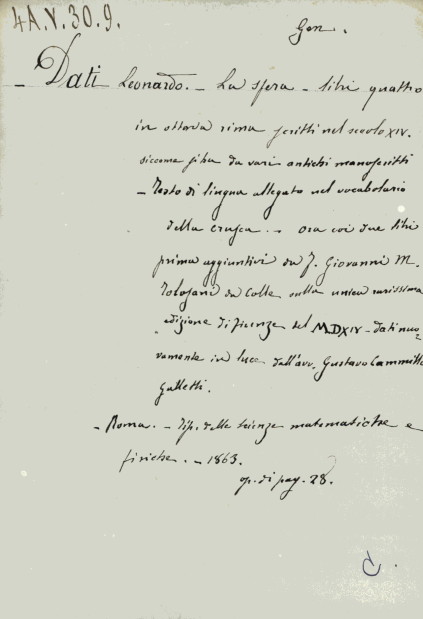 4A.V.30.9.
Gen.
- Dati Leonardo. - La sfera - libri quattro
in ottava rima scritti nel secolo XIV.
siccome si ha da vari antichi manoscritti
- Testo di lingua allegato nel vocabolario
della crusca. - ora coi due libri
prima aggiuntivi da F. Giovanni M.
Tolosani da Colle sulla unica rarissima
edizione di Firenze del MDXIV - dati nuo-
vamente in luce dall'avv. Gustavo Cammillo
Galletti.
- Roma. - Tip. delle scienze matematiche e
fisiche. - 1863.
op. di pag. 28.
C